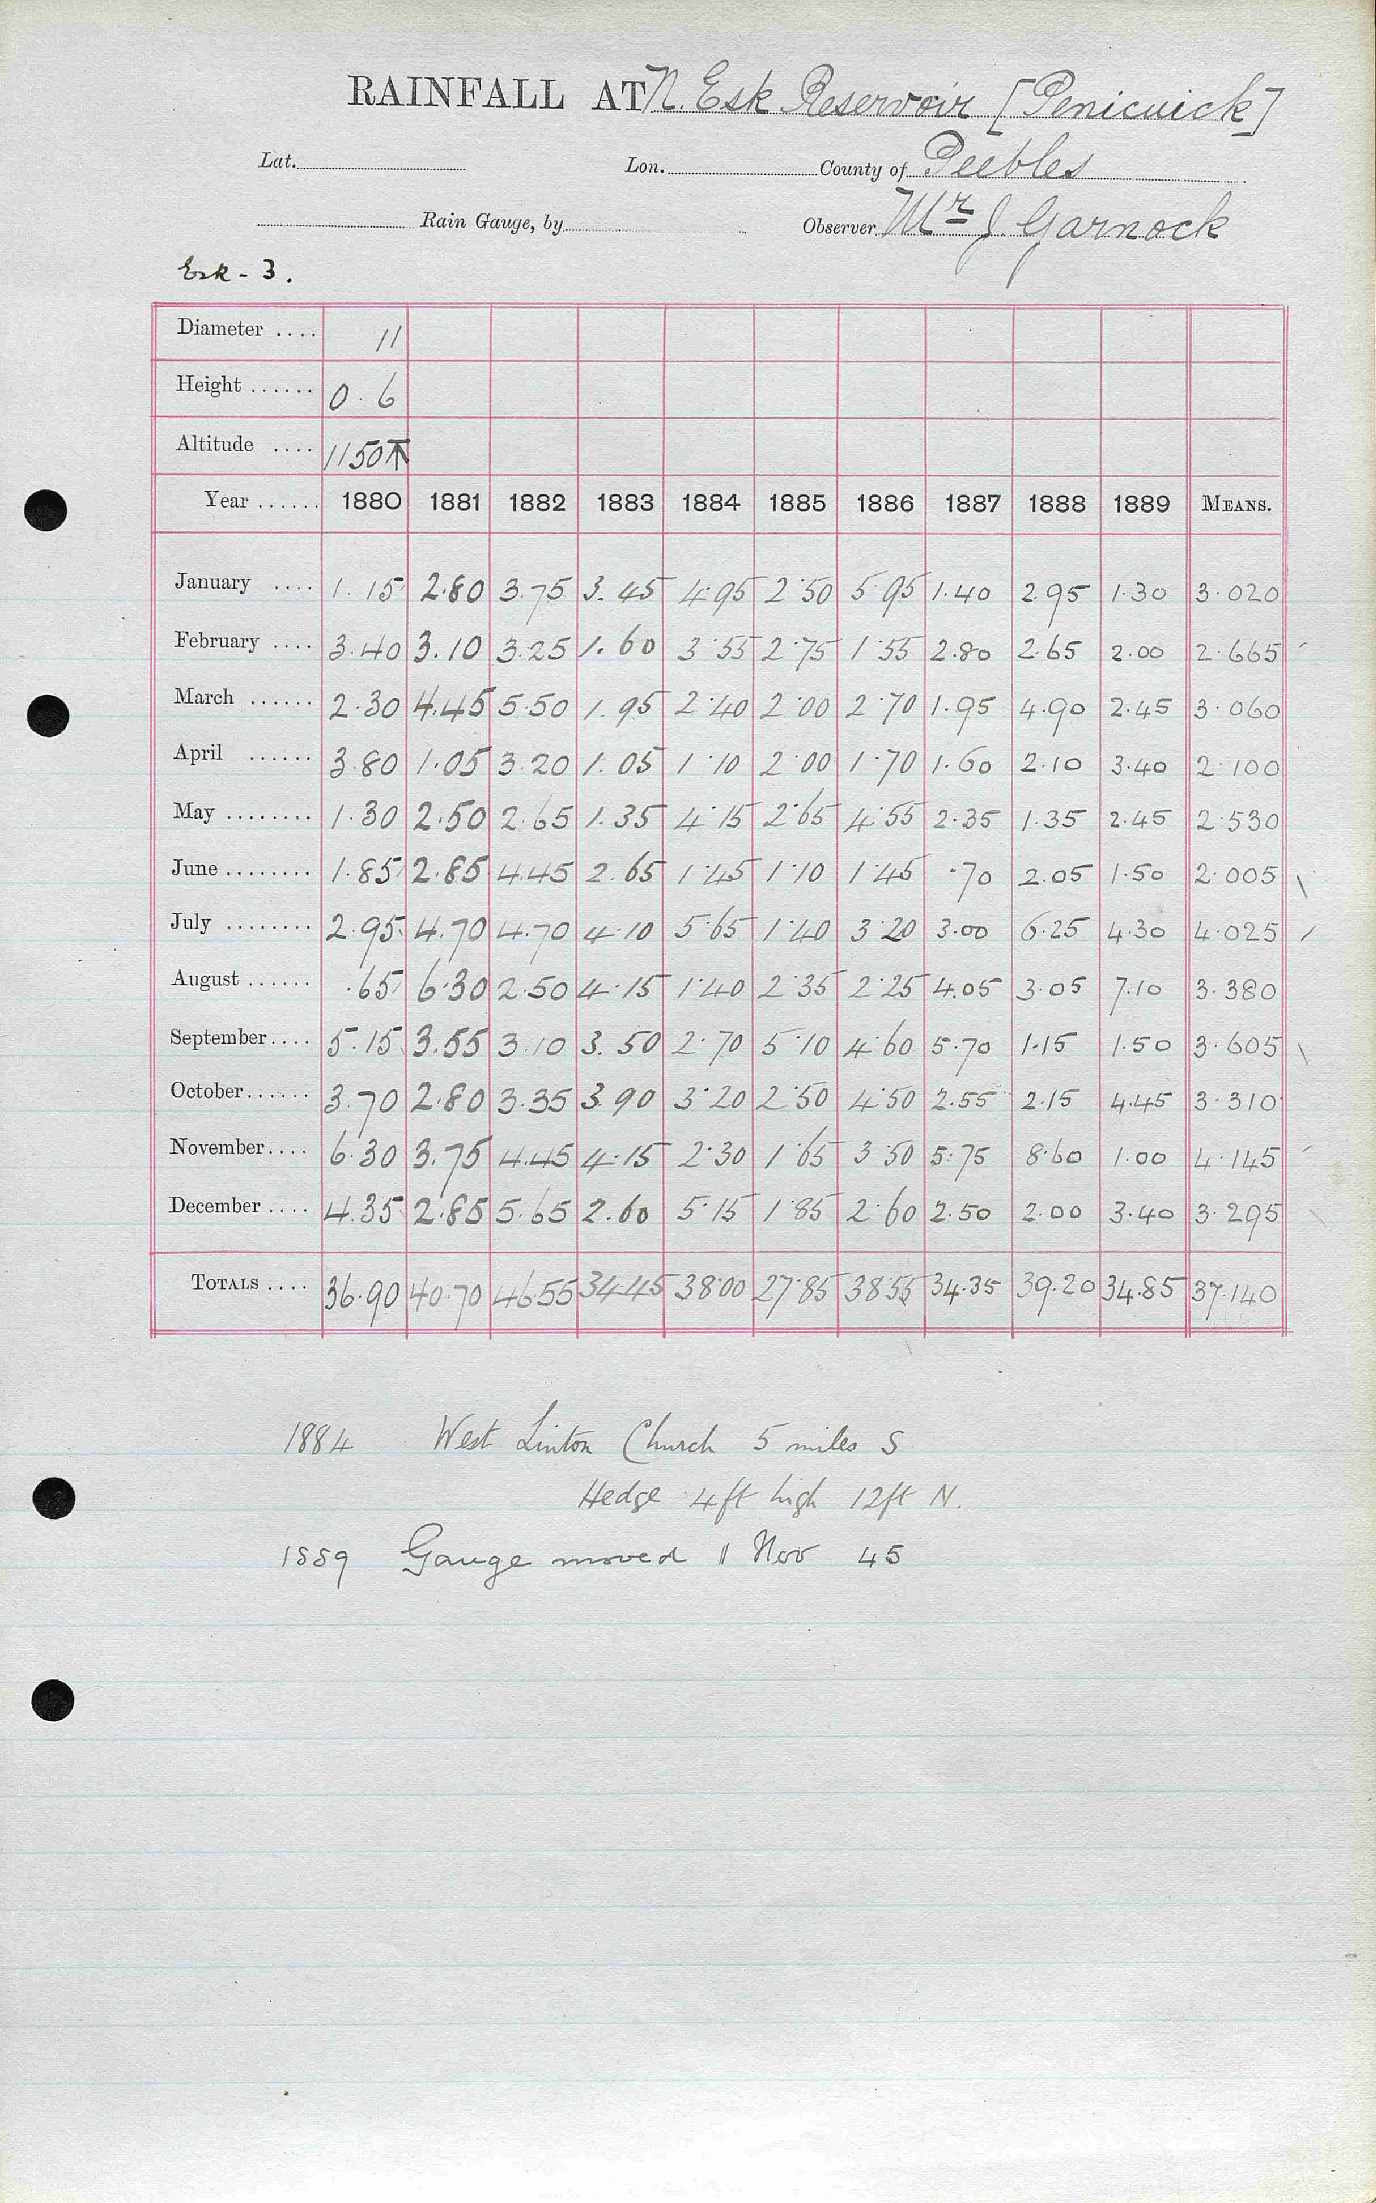 RAINFALL AT N. Esk Reservoir [Penicuick]
Lat. Lon. County of Peebles
Rain Gauge, by Observer Mr J. Garnock
Esk - 3.
Diameter .... 11
Height ...... 0.6
Altitude .... 1150
Year ...... 1880 1881 1882 1883 1884 1885 1886 1887 1888 1889 MEANS.
January .... 1.15 2.80 3.75 3.45 4.95 2.50 5.95 1.40 2.95 1.30 3.020
February .... 3.40 3.10 3.25 1.60 3.55 2.75 1.55 2.80 2.65 2.00 2.665
March ...... 2.30 4.45 5.50 1.95 2.40 2.00 2.70 1.95 4.90 2.45 3.060
April ...... 3.80 1.05 3.20 1.05 1.10 2.00 1.70 1.60 2.10 3.40 2.100
May ........ 1.30 2.50 2.65 1.35 4.15 2.65 4.55 2.35 1.35 2.45 2.530
June ........ 1.85 2.85 4.45 2.65 1.45 1.10 1.45 .70 2.05 1.50 2.005
July ........ 2.95 4.70 4.70 4.10 5.65 1.40 3.20 3.00 6.25 4.30 4.025
August ...... .65 6.30 2.50 4.15 1.40 2.35 2.25 4.05 3.05 7.10 3.380
September .... 5.15 3.55 3.10 3.50 2.70 5.10 4.60 5.70 1.15 1.50 3.605
October ...... 3.70 2.80 3.35 3.90 3.20 2.50 4.50 2.55 2.15 4.45 3.310
November .... 6.30 3.75 4.45 4.15 2.30 1.65 3.50 5.75 8.60 1.00 4.145
December .... 4.35 2.85 5.65 2.60 5.15 1.85 2.60 2.50 2.00 3.40 3.295
TOTALS .... 36.90 40.70 46.55 34.45 38.00 27.85 38.55 34.35 39.20 34.85 37.140
1884 West Linton Church 5 miles S
Hedge 4ft high 12ft N.
1889 Gauge moved 11 Nov 45